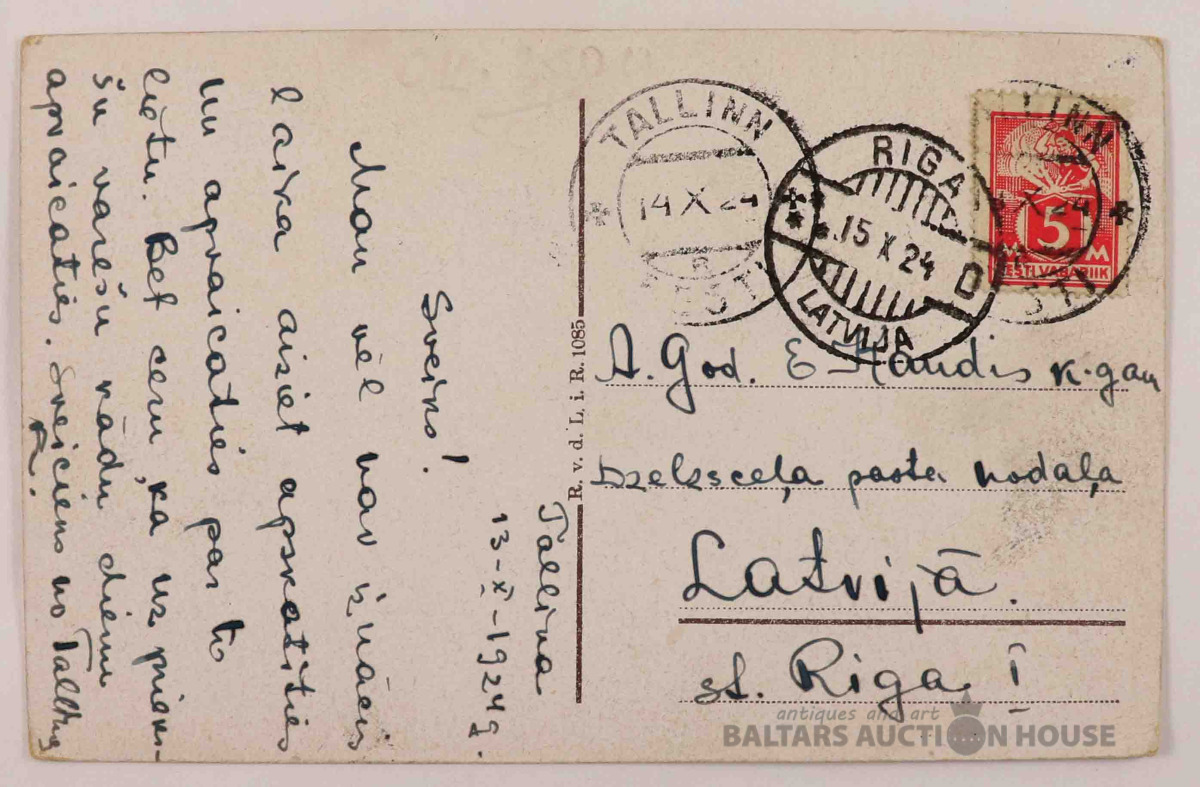 Tallina
13-X-1924g.
Sveiks!
Man vēl nav iznācis
laika aiziet apskatīties
un apvaicaties par to
lietu. Bet ceru, ka uz priekš-
šu varēšu kādu dienu
apvaicaties. Sveiciens no Tallinas
R.
R. v. d. L. i. R. 1085
TALLINN
14 X 24
EESTI
RIGA
15 X 24
D
LATVIJA
LINN
X 24
5
M M
EESTI VABARIIK
A. God. E. k-gam
Dzelzsceļa pasta nodaļa
Latvijā.
st. Riga I
antiques and art
BALTARS AUCTION HOUSE